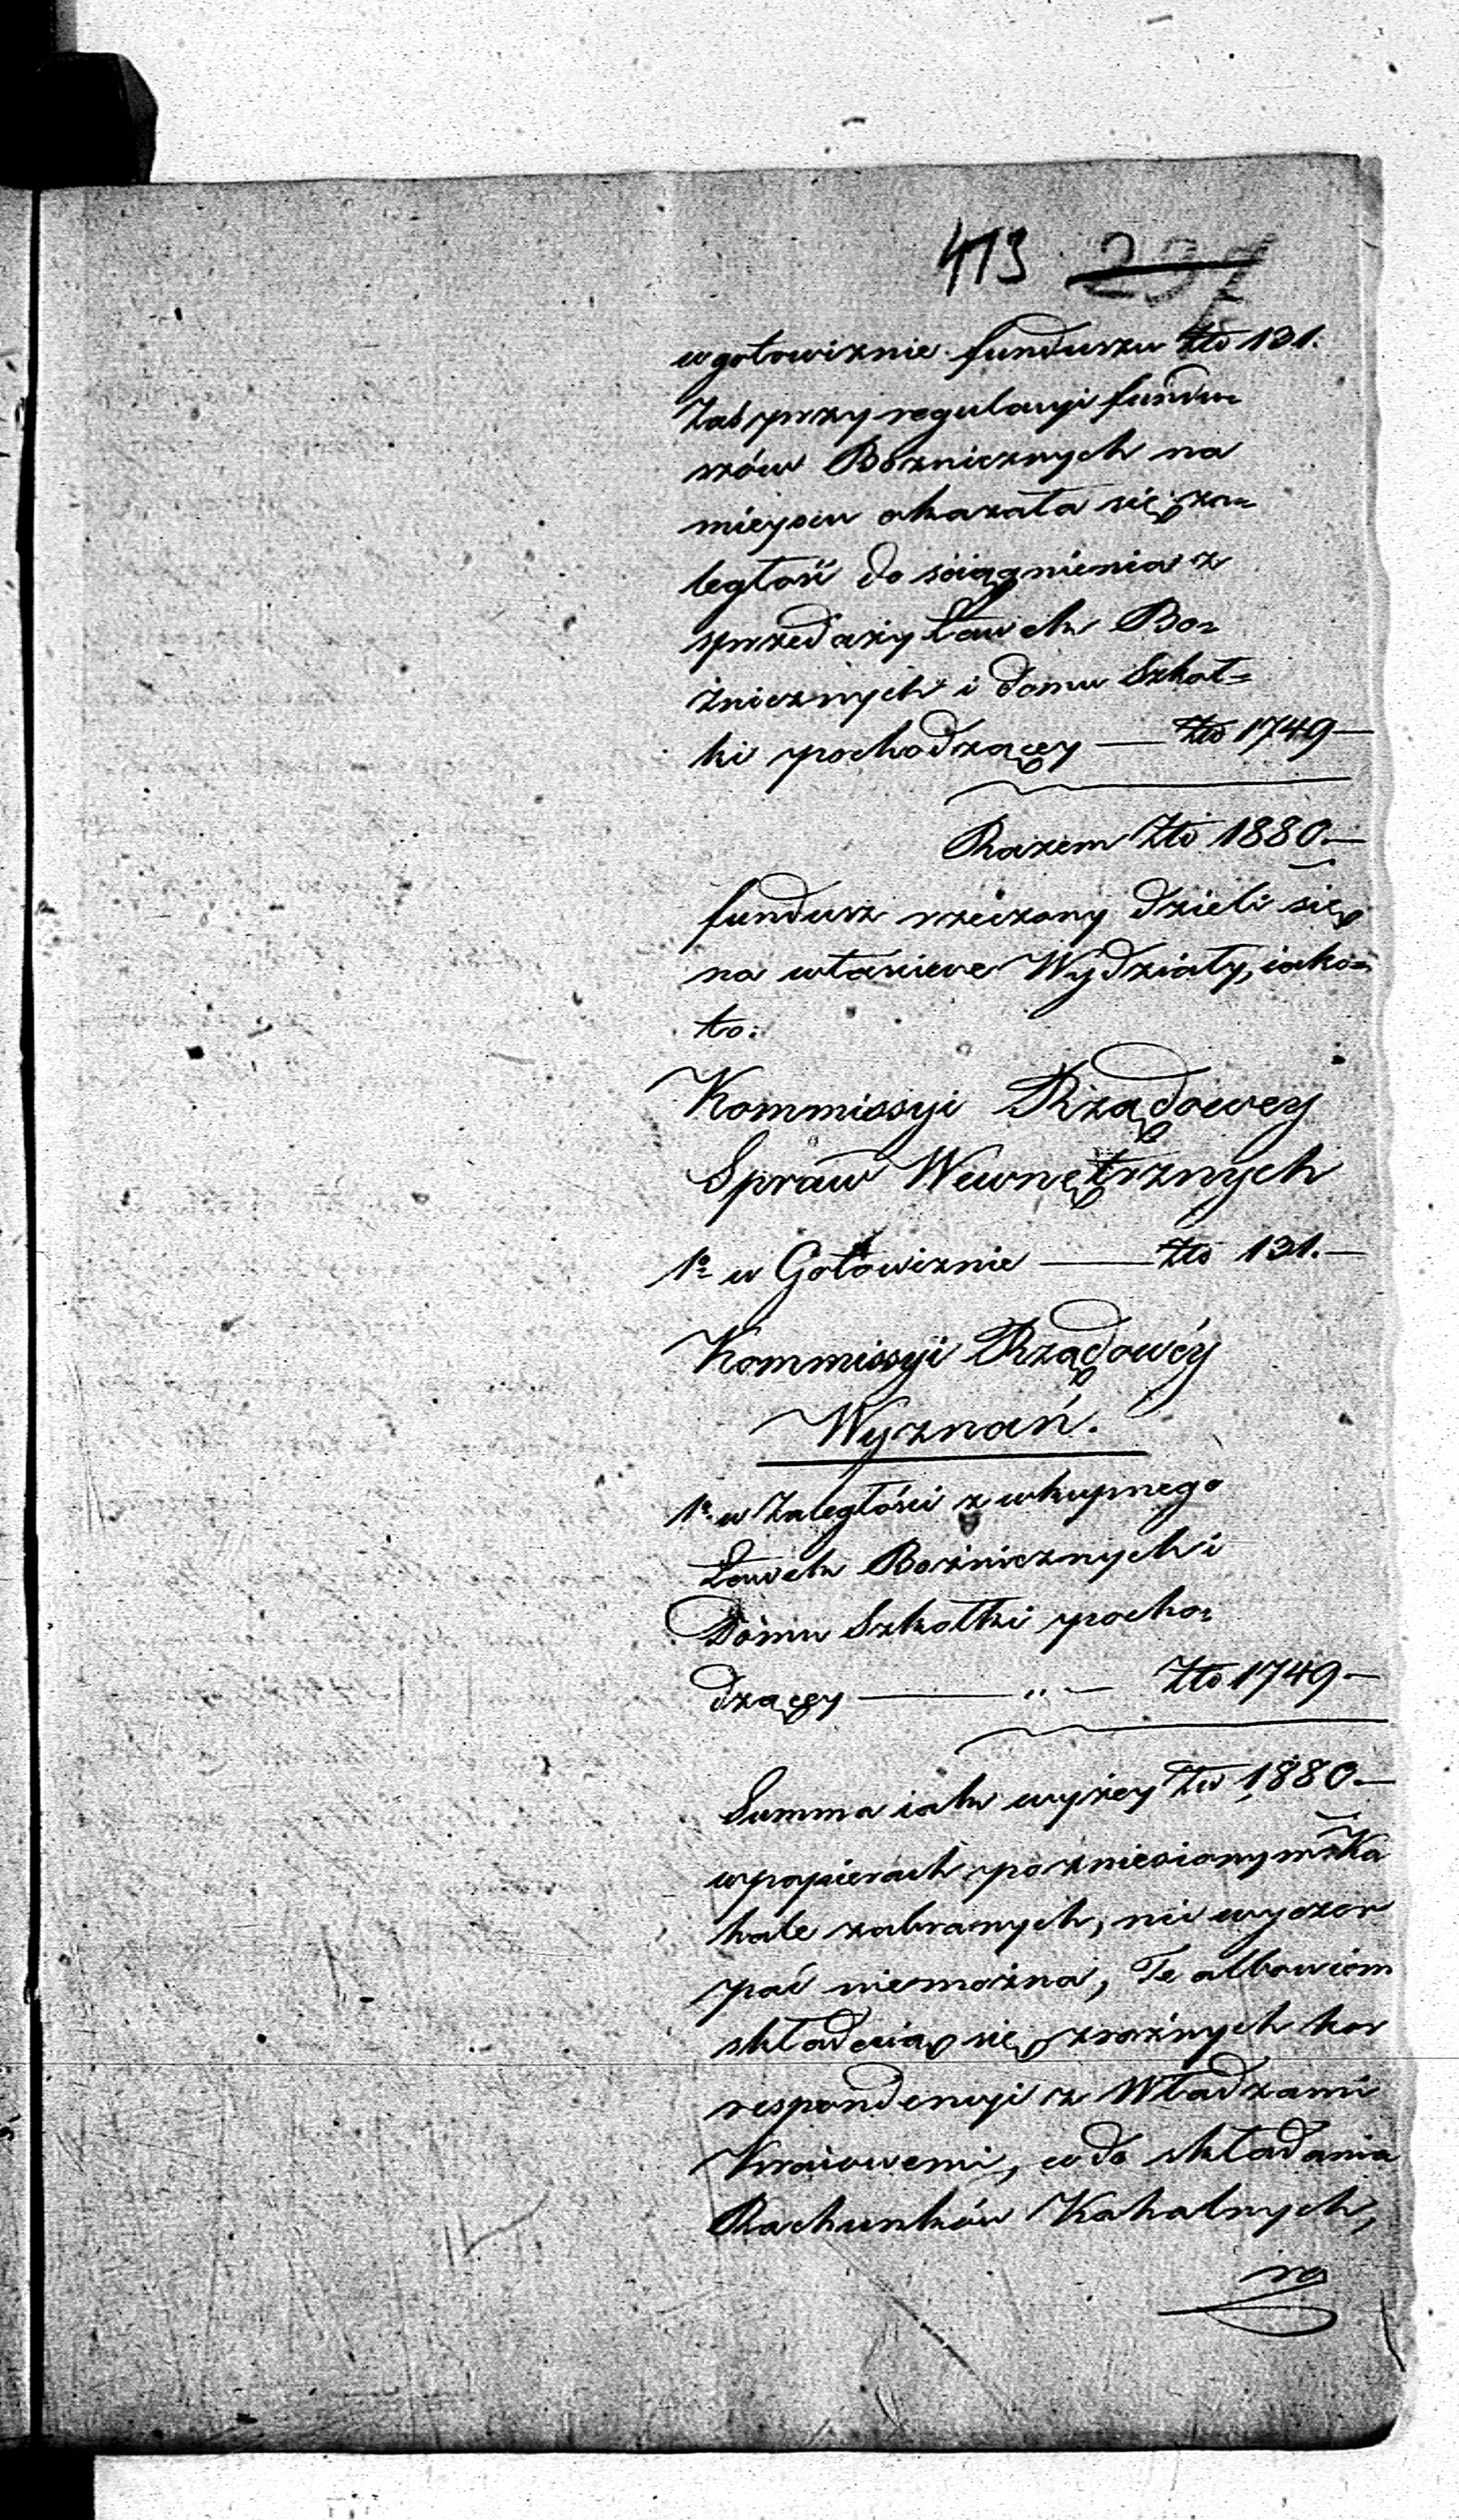 413 237
w gotowiznie funduszu Złó 131.
Zaś przy regulacyi fundu=
szów Boznicznych na
mieyscu okazała się za=
ległość do sciągnienia z
sprzedaży Ławek Bo=
żnicznych i domu Szkoł=
ki pochodzącey — Złó 1749 —
Razem Złó 1880. —
fundusz rzeczony dzieli się
na właściwe Wydziały, iako=
to:
Kommissyi Rządowey
Spraw Wewnętrznych
1º w Gotowiznie — Złó 131. —
Kommissyi Rządowéy
Wyznań.
1º w Zaległości z wkupnego
Ławek Bożnicznych i
Domu Szkołki pocho=
dzącey — „ — Złó 1749 —
Summa iak wyżey Złó 1880 —
w papierach po zniesionym Ka
hale zabranych, nic wyczer
pać niemożna, Te albowiem
składaią się z roźnych kor
respondencyi z Władzami
Kraiowemi, w do składania
Rachunków Kahalnych,